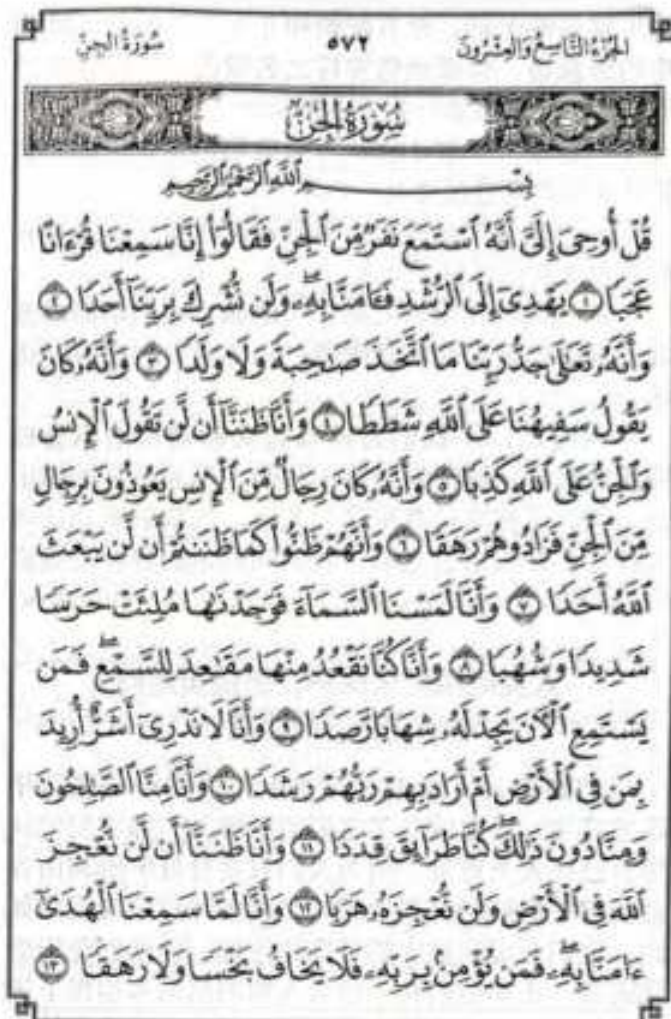 الجزء التاسع والعشرون ٥٧٢ سورة الجن
سُورَةُ الجِنِّ
بِسْمِ ٱللَّهِ ٱلرَّحْمَٰنِ ٱلرَّحِيمِ
قُلْ أُوحِىَ إِلَىَّ أَنَّهُ ٱسْتَمَعَ نَفَرٌ مِّنَ ٱلْجِنِّ فَقَالُوٓا۟ إِنَّا سَمِعْنَا قُرْءَانًا
عَجَبًا ١ يَهْدِىٓ إِلَى ٱلرُّشْدِ فَـَٔامَنَّا بِهِۦ ۖ وَلَن نُّشْرِكَ بِرَبِّنَآ أَحَدًا ٢
وَأَنَّهُۥ تَعَٰلَىٰ جَدُّ رَبِّنَا مَا ٱتَّخَذَ صَٰحِبَةً وَلَا وَلَدًا ٣ وَأَنَّهُۥ كَانَ
يَقُولُ سَفِيهُنَا عَلَى ٱللَّهِ شَطَطًا ٤ وَأَنَّا ظَنَنَّآ أَن لَّن تَقُولَ ٱلْإِنسُ
وَٱلْجِنُّ عَلَى ٱللَّهِ كَذِبًا ٥ وَأَنَّهُۥ كَانَ رِجَالٌ مِّنَ ٱلْإِنسِ يَعُوذُونَ بِرِجَالٍ
مِّنَ ٱلْجِنِّ فَزَادُوهُمْ رَهَقًا ٦ وَأَنَّهُمْ ظَنُّوا۟ كَمَا ظَنَنتُمْ أَن لَّن يَبْعَثَ
ٱللَّهُ أَحَدًا ٧ وَأَنَّا لَمَسْنَا ٱلسَّمَآءَ فَوَجَدْنَٰهَا مُلِئَتْ حَرَسًا
شَدِيدًا وَشُهُبًا ٨ وَأَنَّا كُنَّا نَقْعُدُ مِنْهَا مَقَٰعِدَ لِلسَّمْعِ ۖ فَمَن
يَسْتَمِعِ ٱلْـَٔانَ يَجِدْ لَهُۥ شِهَابًا رَّصَدًا ٩ وَأَنَّا لَا نَدْرِىٓ أَشَرٌّ أُرِيدَ
بِمَن فِى ٱلْأَرْضِ أَمْ أَرَادَ بِهِمْ رَبُّهُمْ رَشَدًا ١٠ وَأَنَّا مِنَّا ٱلصَّٰلِحُونَ
وَمِنَّا دُونَ ذَٰلِكَ ۖ كُنَّا طَرَآئِقَ قِدَدًا ١١ وَأَنَّا ظَنَنَّآ أَن لَّن نُّعْجِزَ
ٱللَّهَ فِى ٱلْأَرْضِ وَلَن نُّعْجِزَهُۥ هَرَبًا ١٢ وَأَنَّا لَمَّا سَمِعْنَا ٱلْهُدَىٰٓ
ءَامَنَّا بِهِۦ ۖ فَمَن يُؤْمِنۢ بِرَبِّهِۦ فَلَا يَخَافُ بَخْسًا وَلَا رَهَقًا ١٣